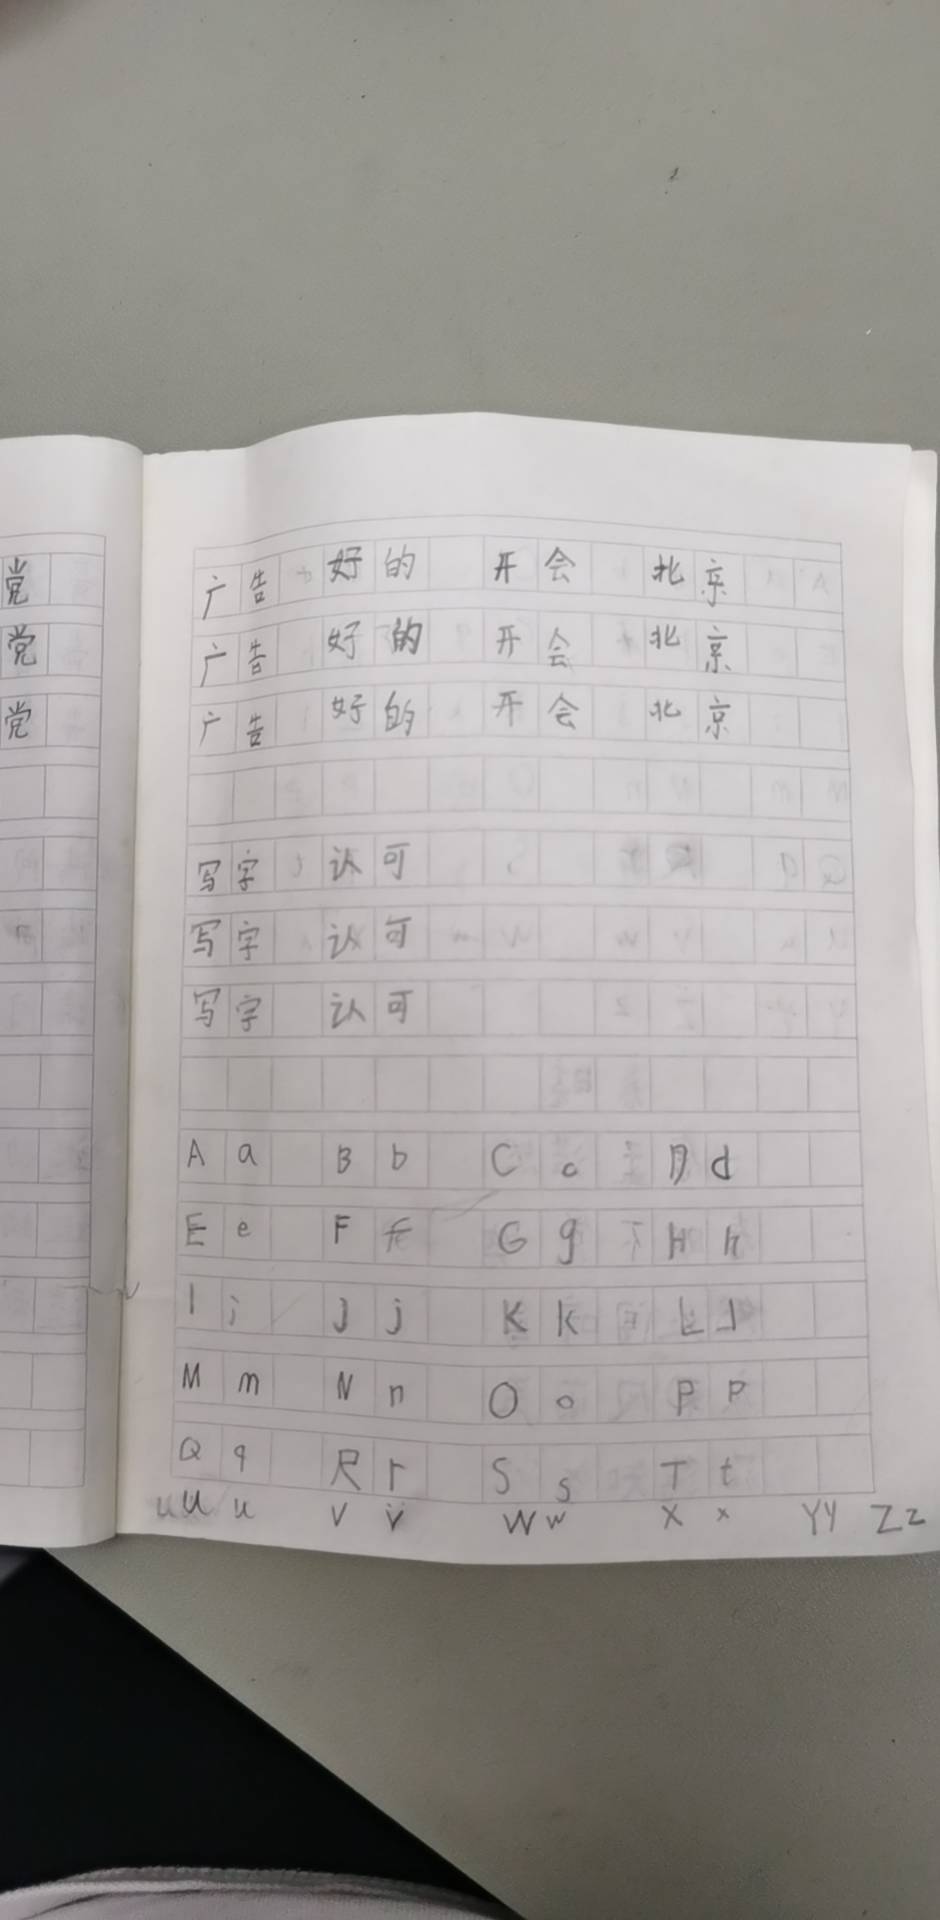 党
党
党
广告 好的 开会 北京
广告 好的 开会 北京
广告 好的 开会 北京
写字 认可
写字 认可
写字 认可
A a B b C c D d
E e F f G g H h
I i J j K k L l
M m N n O o P p
Q q R r S s T t
u U u V v W w X x Y y Z z